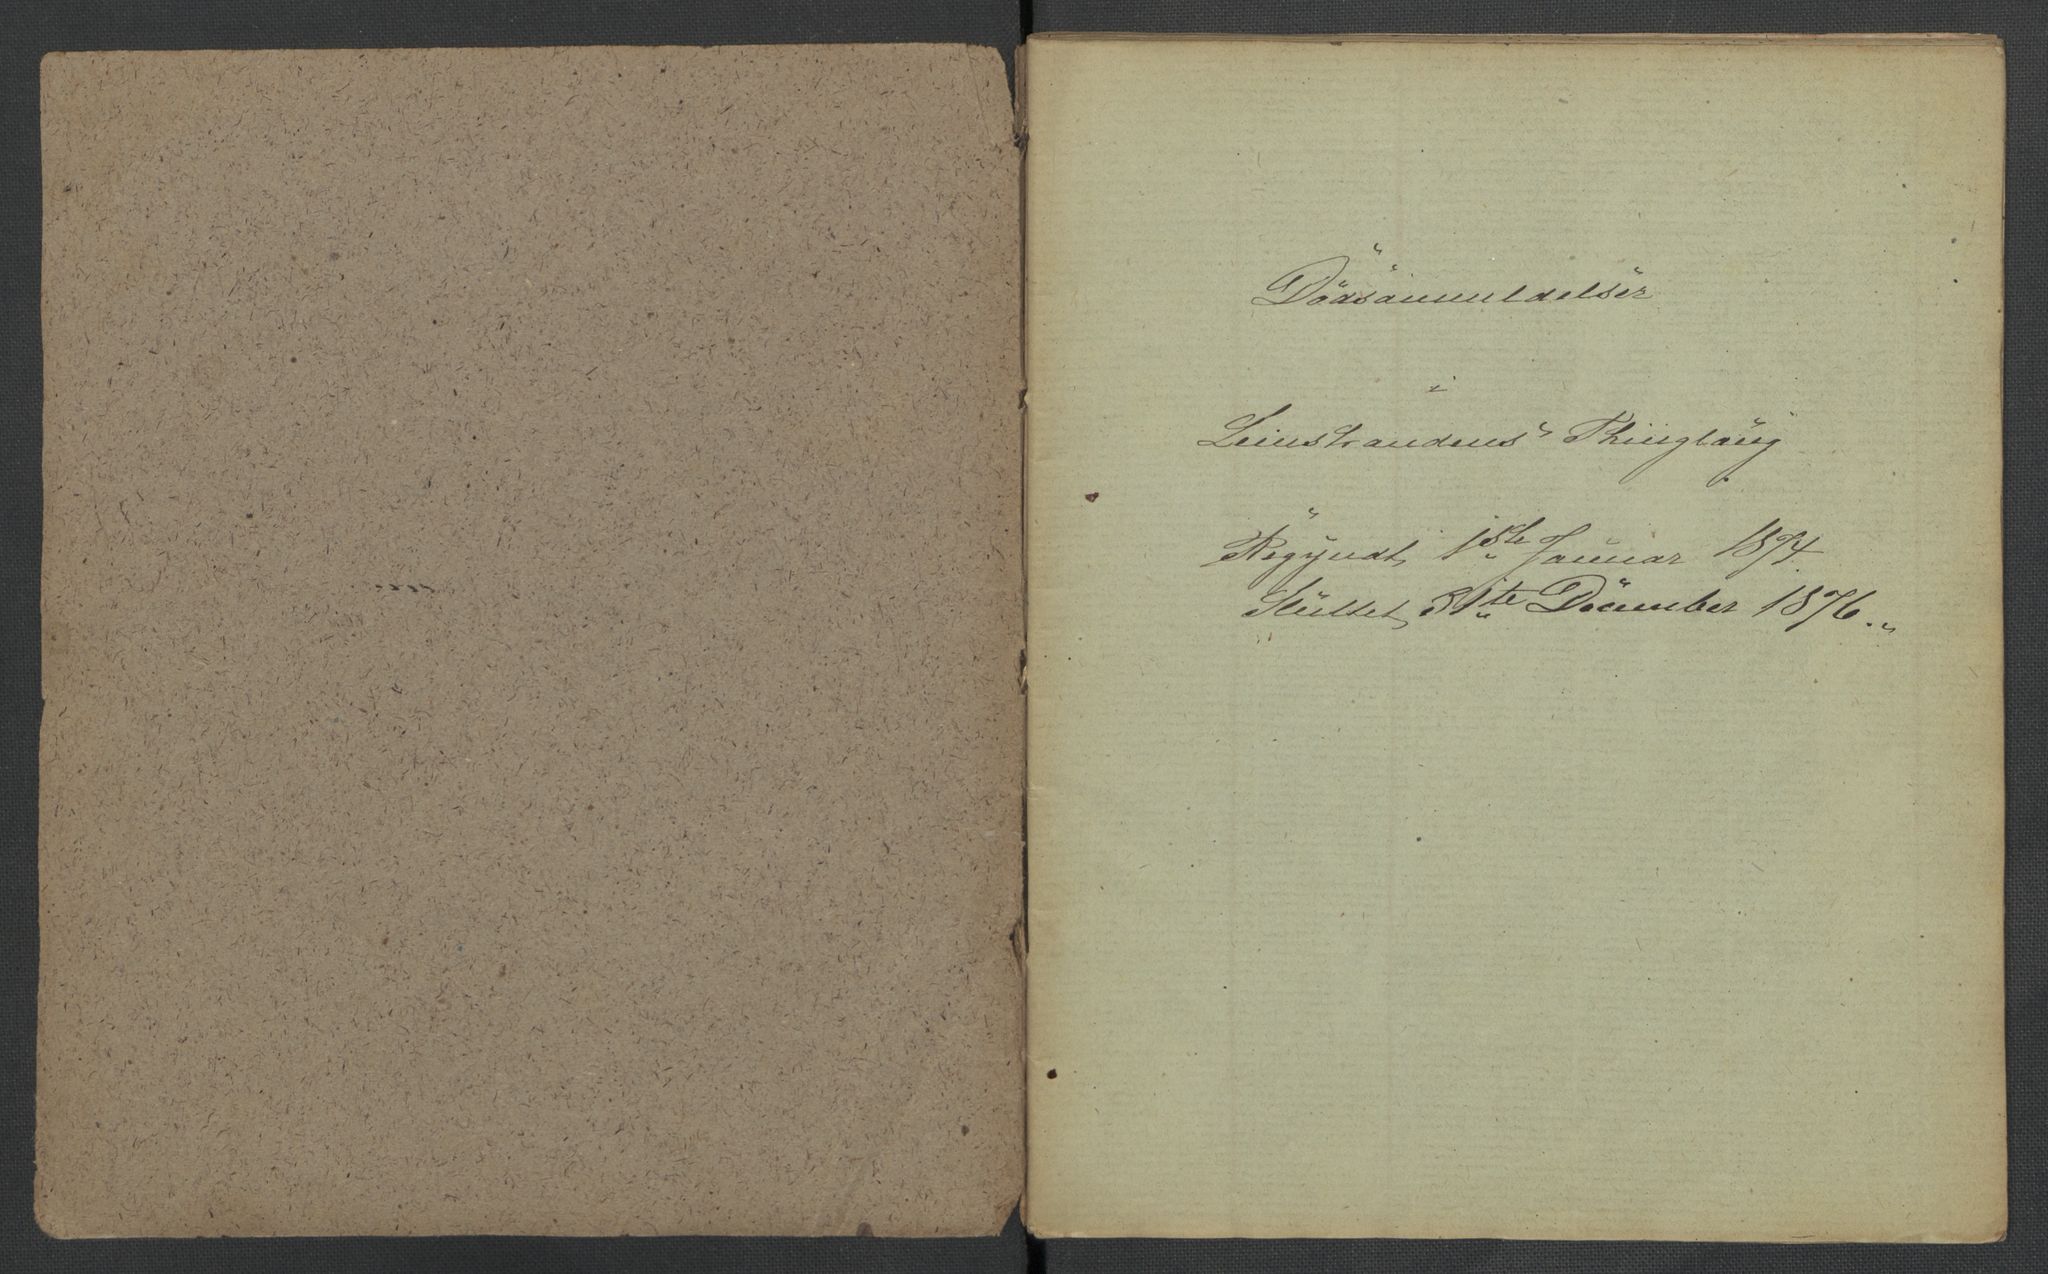 Dödsanmeldelser
i
Leinstrandens Thinglaug
Begyndt 1ste Januar 1874.
Sluttet 31te December 1876.